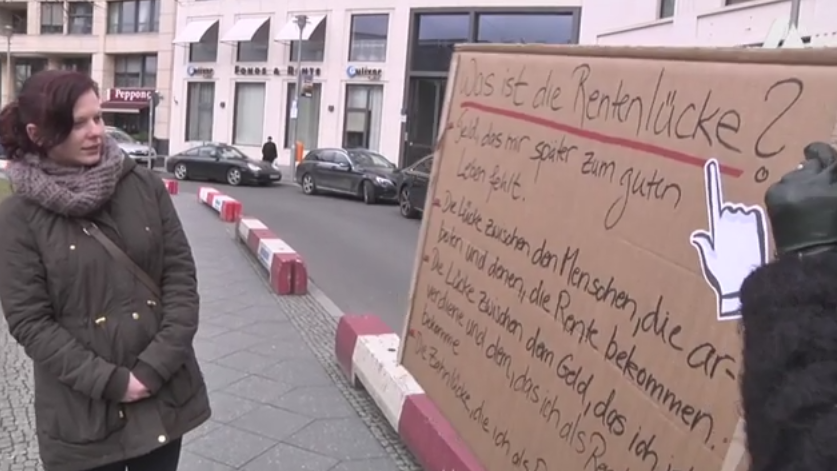 Was ist die Rentenlücke?
- Geld, das mir später zum guten
Leben fehlt.
- Die Lücke zwischen den Menschen, die ar-
beiten und denen, die Rente bekommen.
- Die Lücke zwischen dem Geld, das ich
verdiene und dem, das ich als
bekomme
- Die Zahnlücke, die ich als
Peppone
FONDS & RENTE